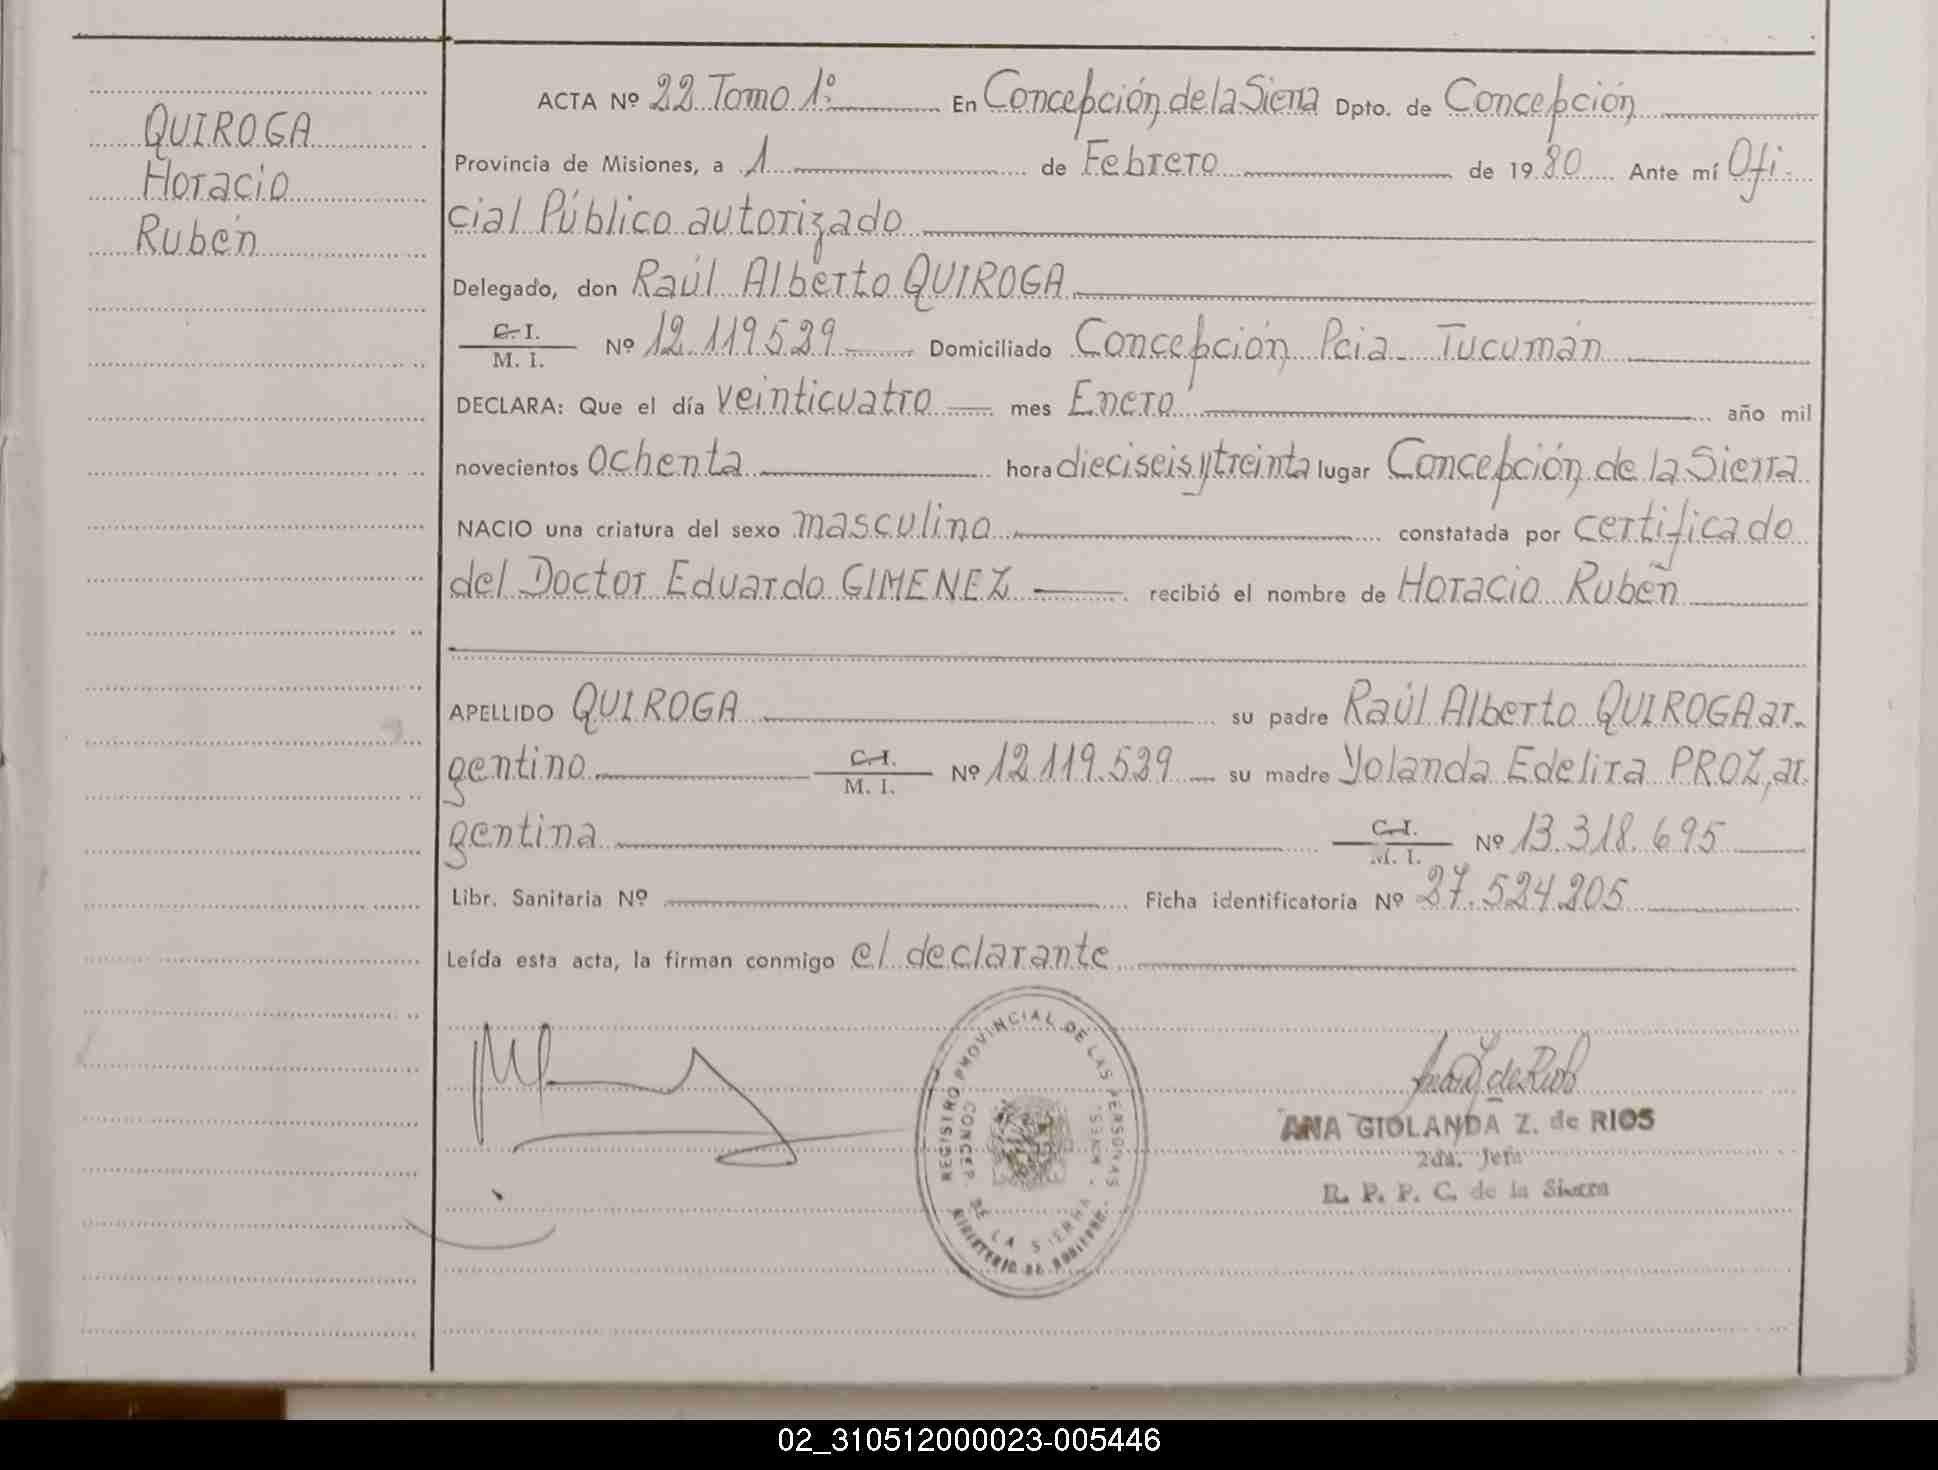 QUIROGA
Horacio
Rubén
ACTA Nº 22 Tomo 1º En Concepción de la Sierra Dpto. de Concepción
Provincia de Misiones, a 1 de Febrero de 1980 Ante mí Ofi-
cial Público autorizado
Delegado, don Raúl Alberto QUIROGA
C. I.
M. I. Nº 12.119.529 Domiciliado Concepción Pcia. Tucumán
DECLARA: Que el día veinticuatro mes Enero año mil
novecientos ochenta hora dieciseis y treinta lugar Concepción de la Sierra
NACIO una criatura del sexo masculino constatada por certificado
del Doctor Eduardo GIMENEZ recibió el nombre de Horacio Rubén
APELLIDO QUIROGA su padre Raúl Alberto QUIROGA ar-
gentino C. I.
M. I. Nº 12.119.529 su madre Yolanda Edelira PROZ, ar
gentina C. I.
M. I. Nº 13.318.695
Libr. Sanitaria Nº Ficha identificatoria Nº 27.524.205
Leída esta acta, la firman conmigo el declarante
REGISTRO PROVINCIAL DE LAS PERSONAS
CONCEP. DE LA SIERRA
MINISTERIO DE GOBIERNO
ANA GIOLANDA Z. de RIOS
2da. Jefa
R. P. P. C. de la Sierra
02_310512000023-005446